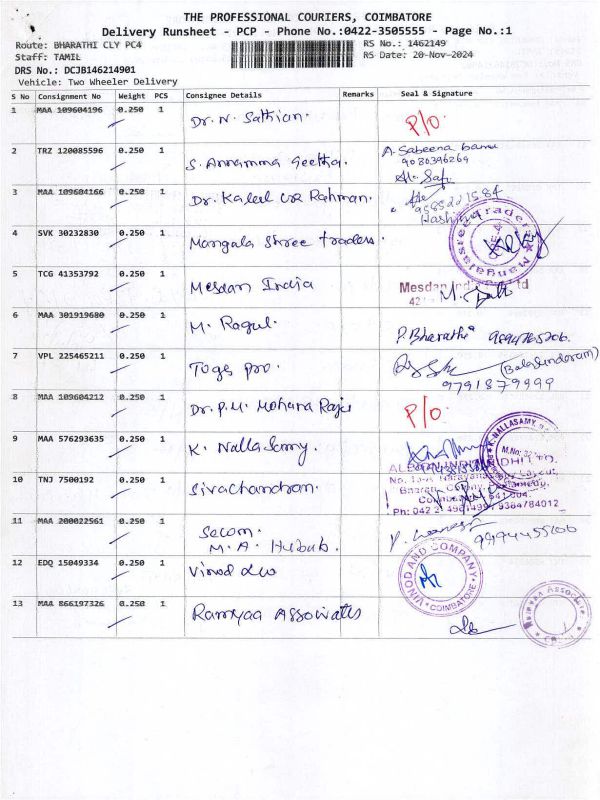 THE PROFESSIONAL COURIERS, COIMBATORE
Delivery Runsheet - PCP - Phone No.:0422-3505555 - Page No.:1
Route: BHARATHI CLY PC4
RS No.: 1462149
Staff: TAMIL
RS Date: 20-Nov-2024
DRS No.: DCJB146214901
Vehicle: Two Wheeler Delivery
S No Consignment No Weight PCS Consignee Details Remarks Seal & Signature
1 MAA 109604196 0.250 1 Dr. N. Sathian. P/O.
2 TRZ 120085596 0.250 1 S. Annamma Geetha. A. Sabeena banu
9080396269
3 MAA 109604166 0.250 1 Dr. Kaleel ur Rahman.
4 SVK 30232830 0.250 1 Mangala Shree traders.
5 TCG 41353792 0.250 1 Mesdan India Mesdan Ltd
6 MAA 301919680 0.250 1 M. Ragul. P. Bharathi 9894765206.
7 VPL 225465211 0.250 1 Toge pro. (Balasundaram)
9791879999
8 MAA 109604212 0.250 1 Dr. P.M. Mohana Raju P/O.
9 MAA 576293635 0.250 1 K. Nalla Samy. K.NALLASAMY
10 TNJ 7500192 0.250 1 Sivachandran.
11 MAA 200022561 0.250 1 Secom.
M.A. Hubub.
12 EDQ 15049334 0.250 1 Vinod &co VINOD AND COMPANY
COIMBATORE
13 MAA 866197326 0.250 1 Ramyaa Associates